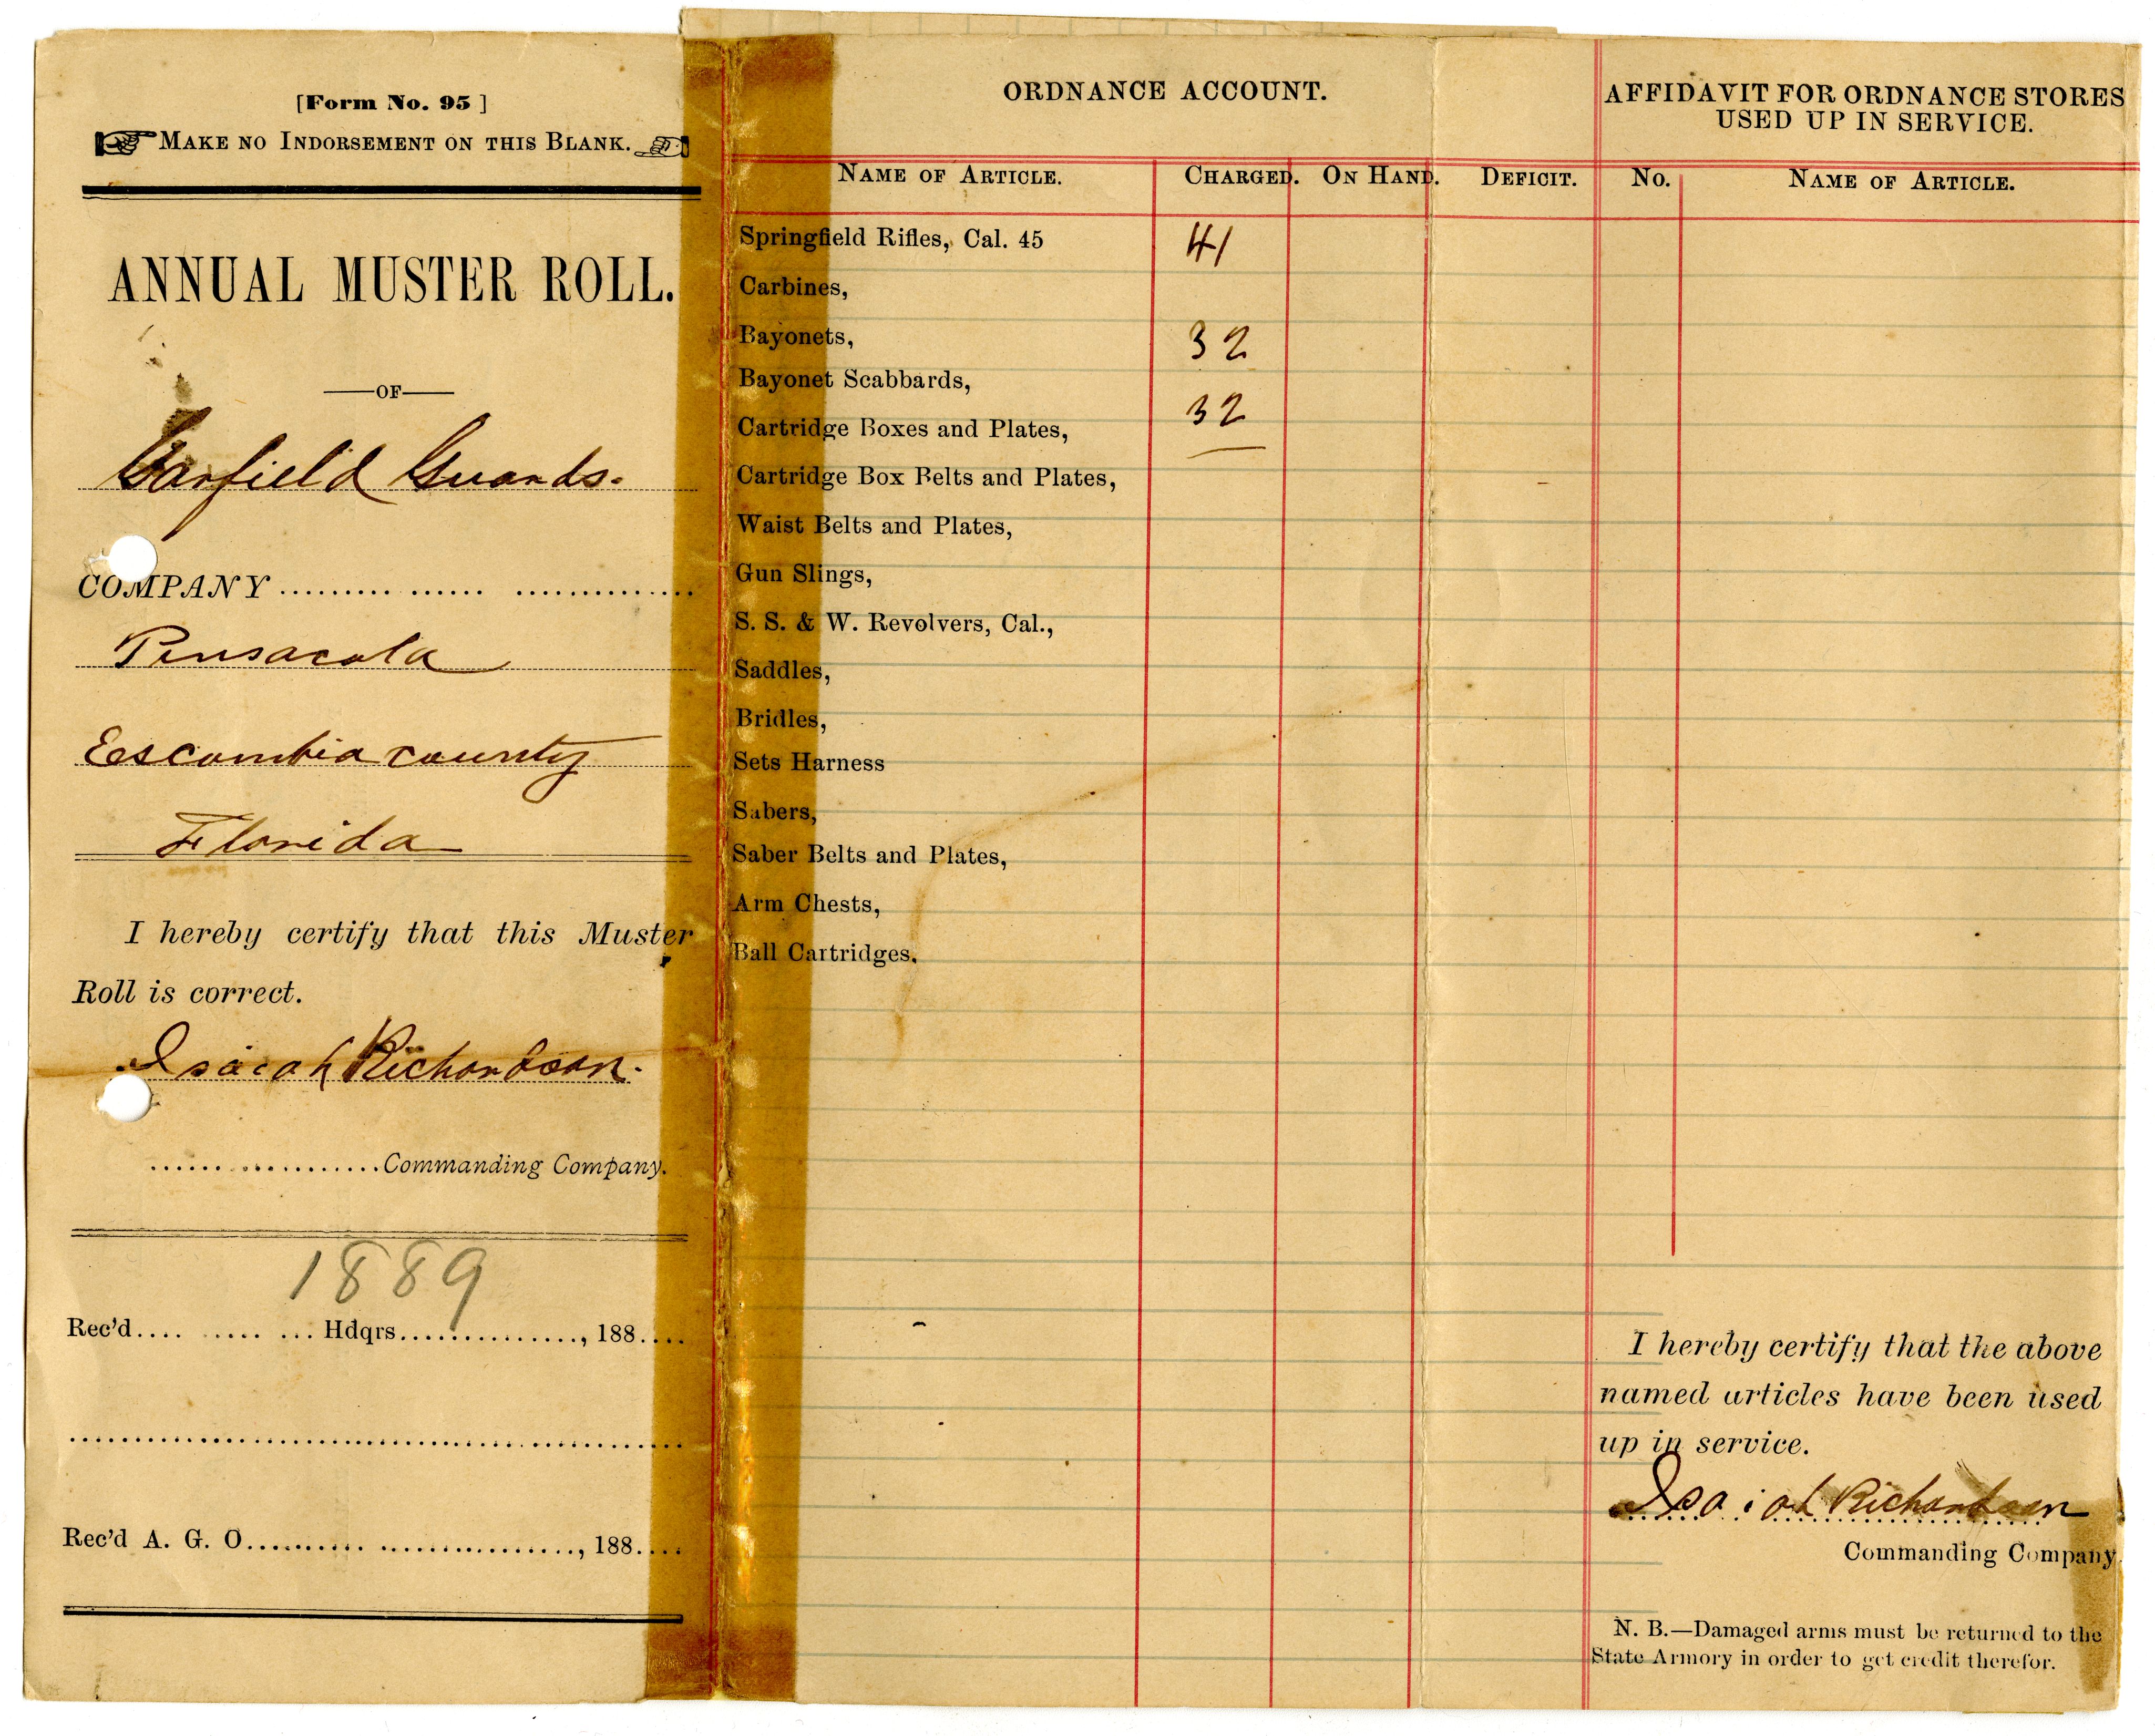 [Form No. 95 ]
MAKE NO INDORSEMENT ON THIS BLANK.
ANNUAL MUSTER ROLL.
—OF—
Garfield Guards.
COMPANY
Pensacola
Escambia county
Florida
I hereby certify that this Muster
Roll is correct.
Isaiah Richardson.
Commanding Company.
1889
Rec'd.... ..... ... Hdqrs..............., 188....
Rec'd A. G. O.......... .................., 188....
ORDNANCE ACCOUNT.
NAME OF ARTICLE. CHARGED. ON HAND. DEFICIT.
Springfield Rifles, Cal. 45 41
Carbines,
Bayonets, 32
Bayonet Scabbards,
Cartridge Boxes and Plates, 32
Cartridge Box Belts and Plates,
Waist Belts and Plates,
Gun Slings,
S. S. & W. Revolvers, Cal.,
Saddles,
Bridles,
Sets Harness
Sabers,
Saber Belts and Plates,
Arm Chests,
Ball Cartridges.
AFFIDAVIT FOR ORDNANCE STORES
USED UP IN SERVICE.
No. NAME OF ARTICLE.
I hereby certify that the above
named articles have been used
up in service.
Isaiah Richardson
Commanding Company.
N. B.—Damaged arms must be returned to the
State Armory in order to get credit therefor.